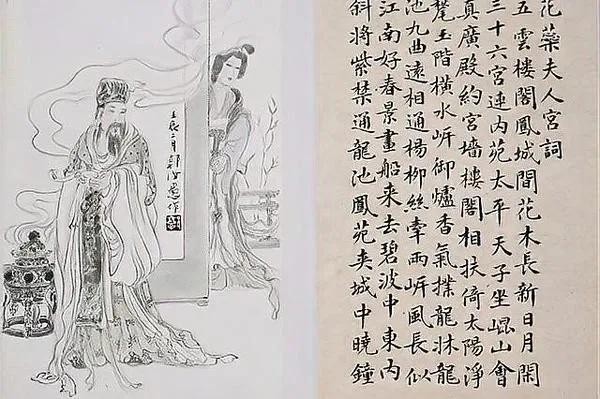 花藥夫人宮詞
五雲樓閣鳳城間花木長新日月閑
三十六宮連內苑太平天子坐崐山會
真廣殿約宮墻樓閣相扶倚太陽淨
甃玉階橫水岍御爐香氣撲龍牀龍
池九曲遠相通楊柳絲牽兩岍風長似
江南好春景畫船来去碧波中東內
斜將紫禁通龍池鳳苑夾城中曉鐘
壬辰二月郭汝愚作